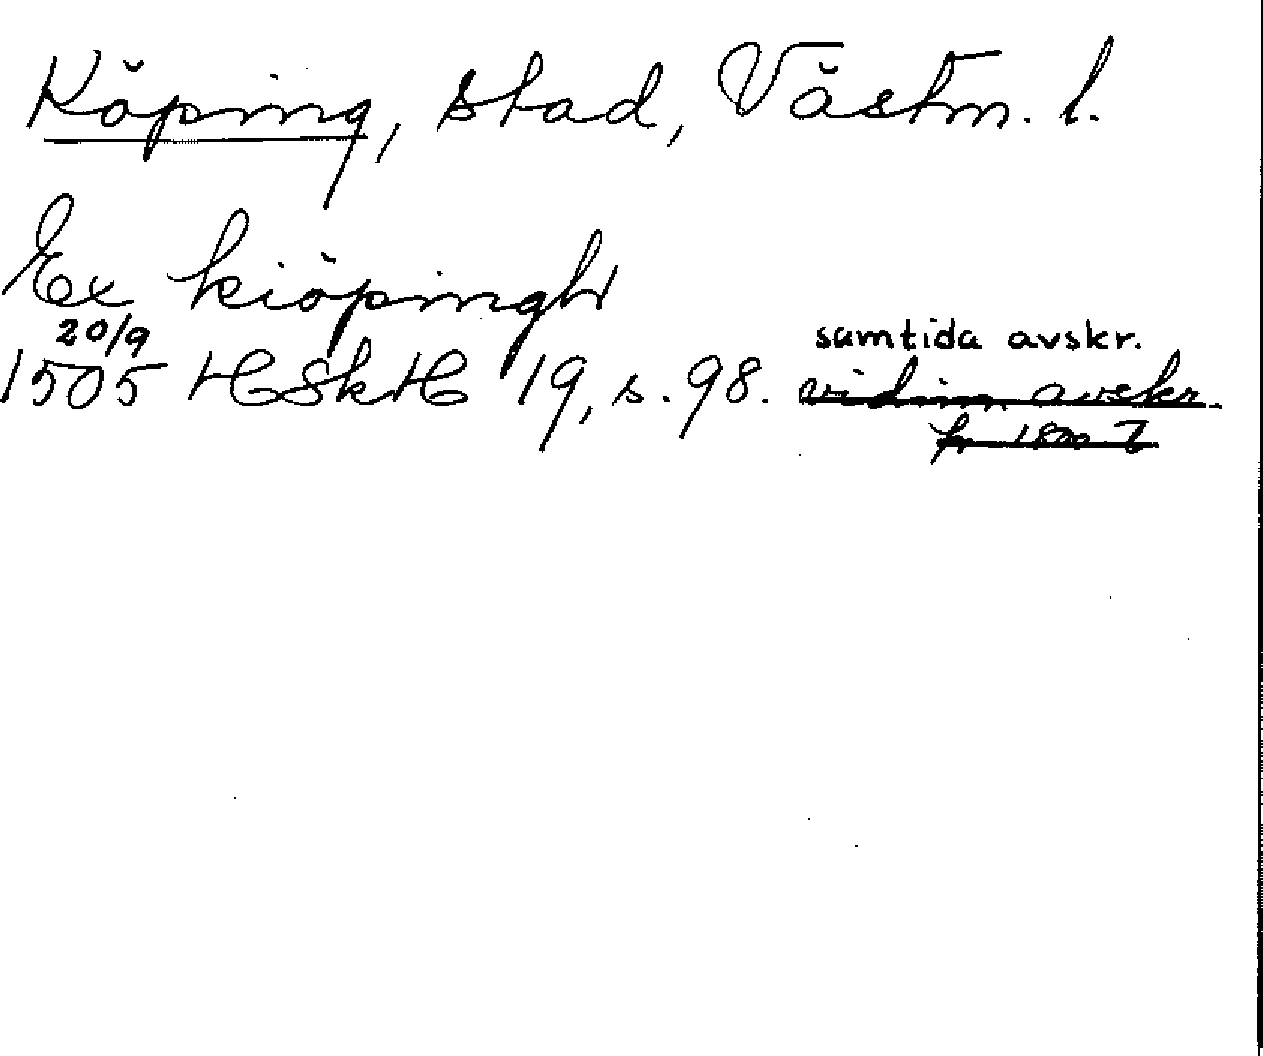 Köping, stad, Västm. l.
Ex kiöpingh
20/9 samtida avskr.
1505 HSkH 19, s. 98. vidim. avskr.
fr 1800 T